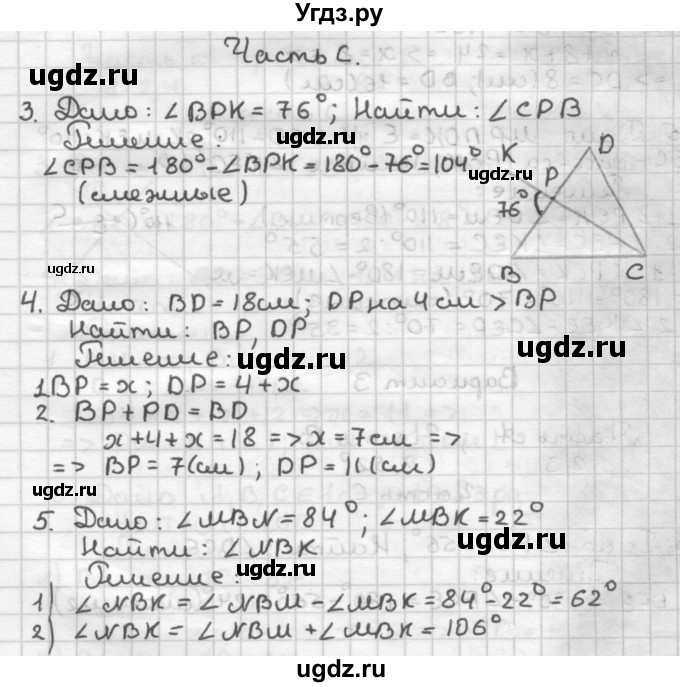 Угдз.ру
Часть С.
ugdz.ru
3. Дано: ∠BPK = 76°; Найти: ∠CPB
Решение:
ugdz.ru
∠CPB = 180° - ∠BPK = 180° - 76° = 104°
(смежные)
K
D
ugdz.ru
P
76°
B
C
ugdz.ru
4. Дано: BD = 18 см; DP на 4 см > BP
Найти: BP, DP
ugdz.ru
Решение:
ugdz.ru
1. BP = x; DP = 4 + x
2. BP + PD = BD
x + 4 + x = 18 => x = 7 см =>
=> BP = 7 (см); DP = 11 (см)
ugdz.ru
5. Дано: ∠MBN = 84°; ∠MBK = 22°
Найти: ∠NBK
ugdz.ru
Решение:
ugdz.ru
1) ∠NBK = ∠NBM - ∠MBK = 84° - 22° = 62°
2) ∠NBK = ∠NBM + ∠MBK = 106°
ugdz.ru
ugdz.ru